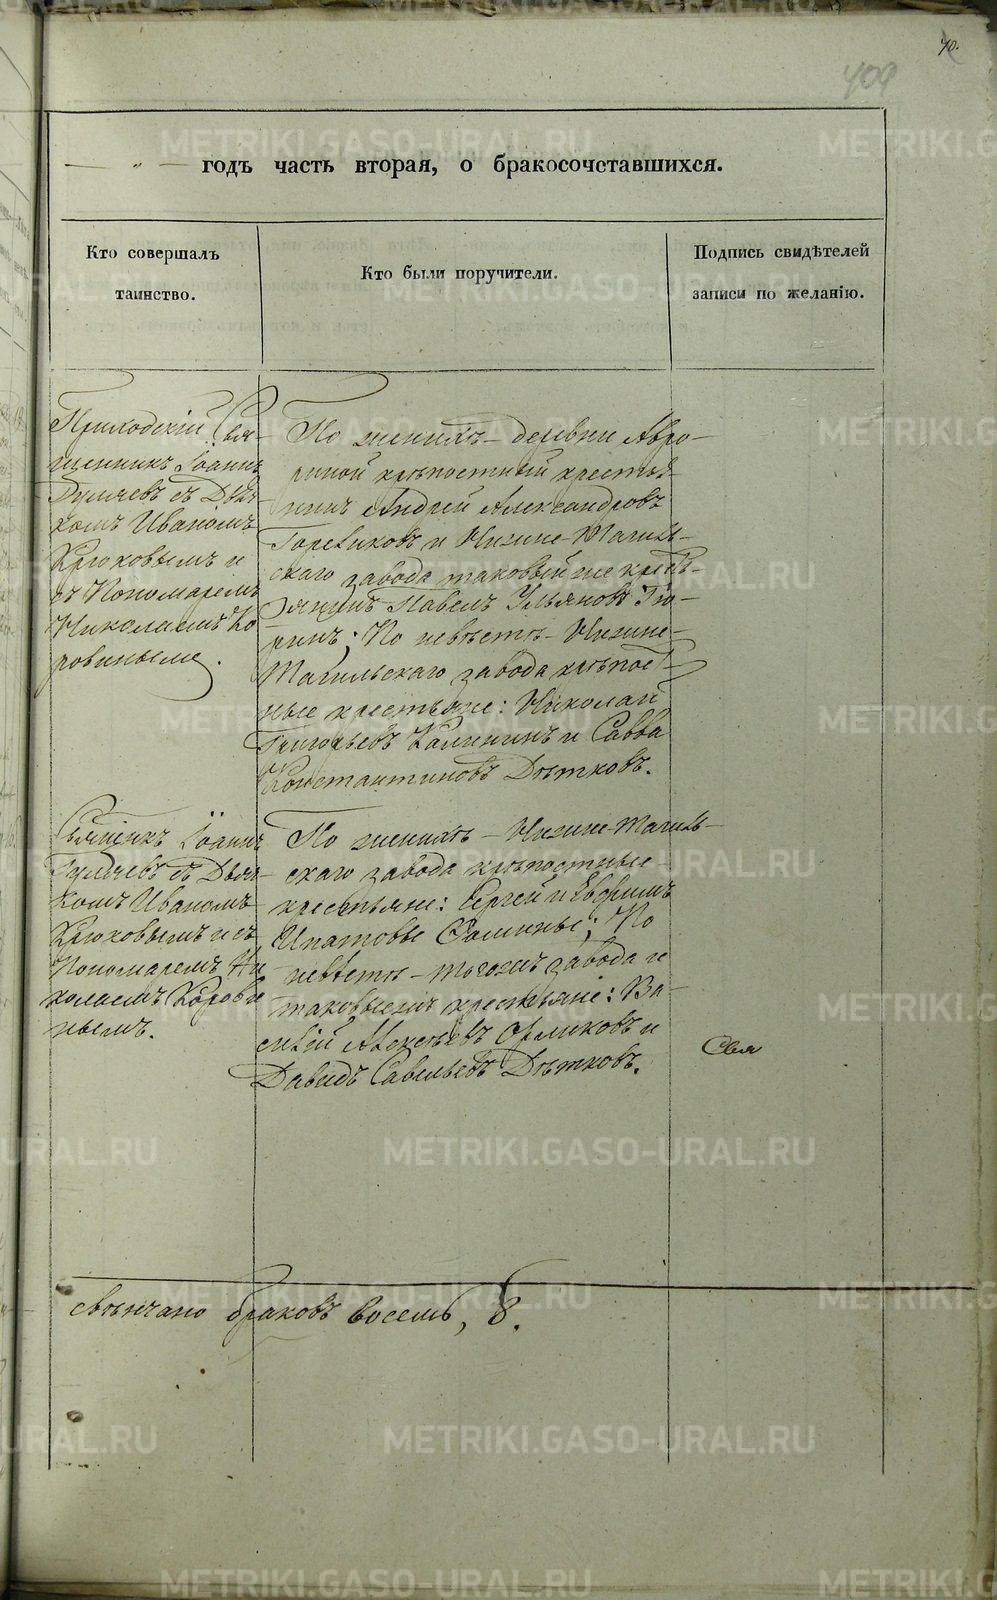 40.
409
годъ часть вторая, о бракосочетавшихся.
Кто совершалъ
таинство.
Кто были поручители.
Подпись свидѣтелей
записи по желанію.
Приходскій Свя-
щенникъ Іоаннъ
Гуляевъ съ Дья-
комъ Иваномъ
Крюковымъ и
съ Пономаремъ
Николаемъ Ко
ровинымъ.
По женихѣ - деревни Авро-
риной крѣпостный крестья
нинъ Андрей Александровъ
и Нижне-Тагиль-
скаго завода таковый же крест
янинъ Павелъ Ульяновъ Тю-
ринъ; По невѣстѣ - Нижне-
Тагильскаго завода крѣпост-
ные крестьяне: Николай
Григорьевъ Калининъ и Савва
Константиновъ Дѣтковъ.
Священикъ Іоаннъ
Гуляевъ съ Дья-
комъ Иваномъ
Крюковымъ и съ
Пономаремъ Ни
колаемъ Корови
нымъ.
По женихѣ - Нижне-Тагиль-
скаго завода крѣпостные
крестьяне: Сергей и Евфимъ
Ипатовы Фомины; По
невѣстѣ - тогожъ завода и
таковыежъ крестьяне: Ва-
силій Алексѣевъ Орликовъ и
Давидъ Савельевъ Дѣтковъ.
Свя
свѣнчано браковъ восемь, 8.
METRIKI.GASO-URAL.RU